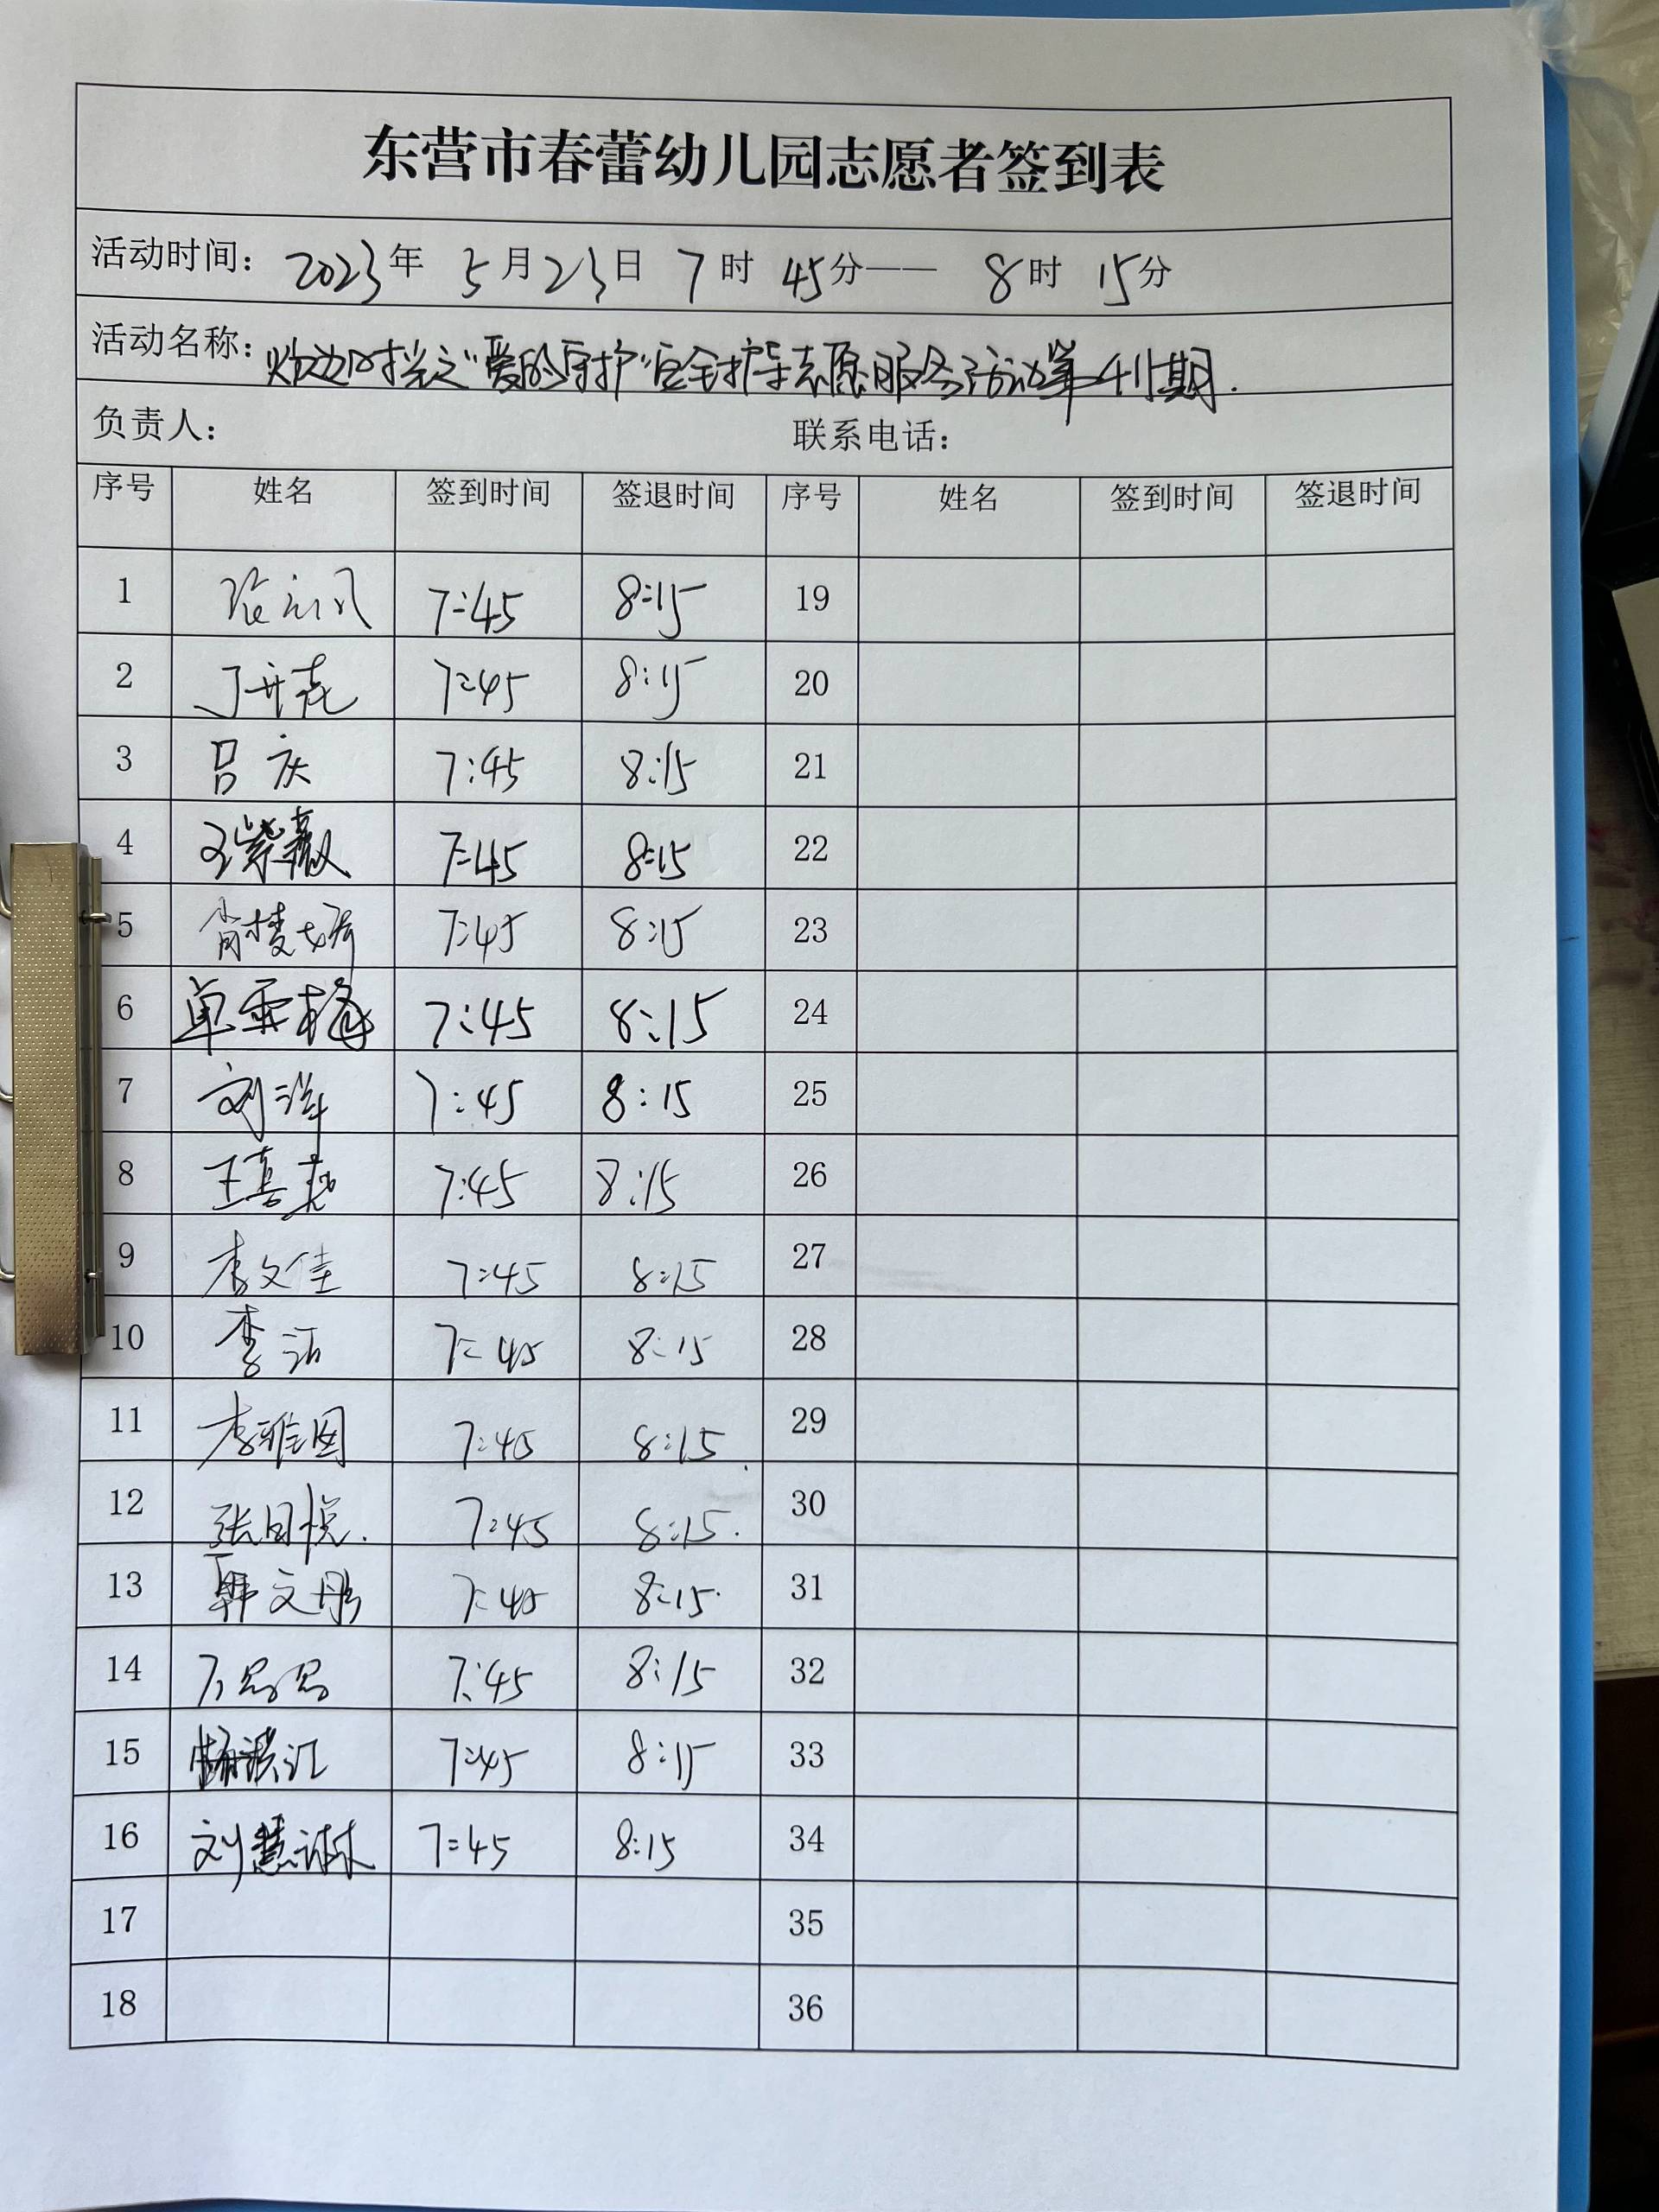 东营市春蕾幼儿园志愿者签到表
活动时间: 2023年 5月23日 7时 45分—— 8时 15分
活动名称: "爱的守护"安全护导志愿服务活动第 期.
负责人: 联系电话:
序号 姓名 签到时间 签退时间 序号 姓名 签到时间 签退时间
1 7:45 8:15 19
2 7:45 8:15 20
3 吕庆 7:45 8:15 21
4 王紫薇 7:45 8:15 22
5 肖楼妍 7:45 8:15 23
6 卓雪梅 7:45 8:15 24
7 刘洋 7:45 8:15 25
8 王喜燕 7:45 8:15 26
9 李文佳 7:45 8:15 27
10 李 7:45 8:15 28
11 李雅图 7:45 8:15 29
12 张日悦. 7:45 8:15. 30
13 韩文彤 7:45 8:15. 31
14 7:45 8:15 32
15 7:45 8:15 33
16 刘慧 7:45 8:15 34
17 35
18 36